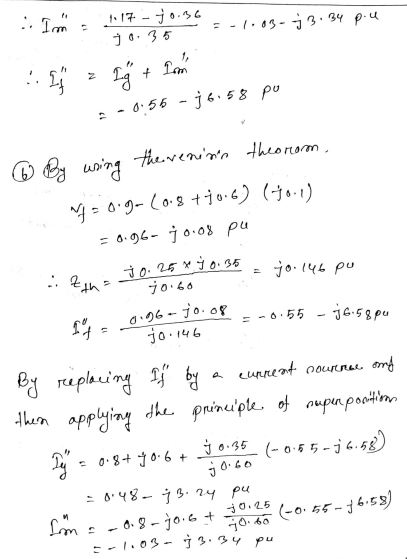 ∴ Im" = (1.17 - j0.36) / (j0.35) = -1.03 - j3.34 p.u
∴ If" = Ig" + Im"
= -0.55 - j6.58 pu
(b) By using thevenin's theorem.
Vf = 0.9 - (0.8 + j0.6) (j0.1)
= 0.96 - j0.08 pu
∴ Zth = (j0.25 × j0.35) / (j0.60) = j0.146 pu
If" = (0.96 - j0.08) / (j0.146) = -0.55 - j6.58 pu
By replacing If" by a current source and
then applying the principle of superposition
Ig" = 0.8 + j0.6 + (j0.35) / (j0.60) (-0.55 - j6.58)
= 0.48 - j3.24 pu
Im" = -0.8 - j0.6 + (j0.25) / (j0.60) (-0.55 - j6.58)
= -1.03 - j3.34 pu